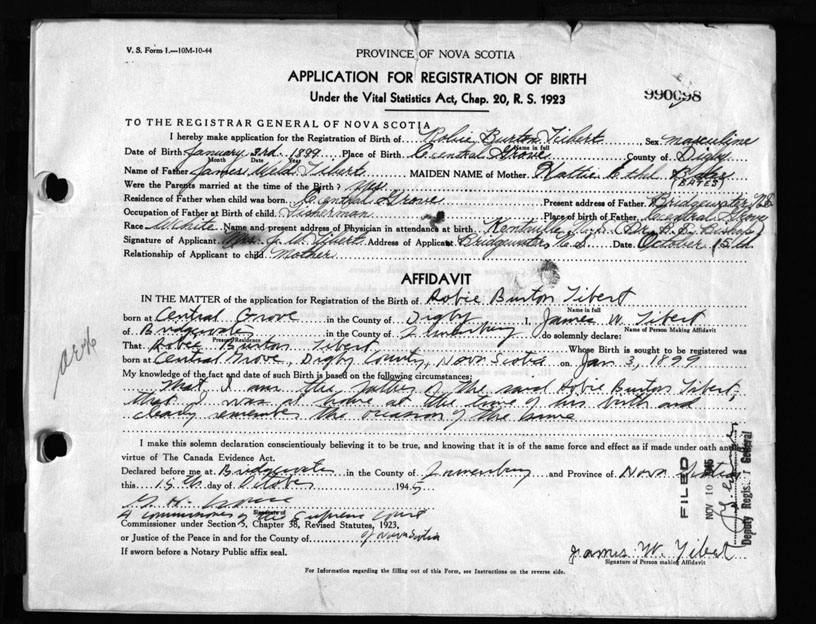 V. S. Form 1.—10M-10-44
PROVINCE OF NOVA SCOTIA
APPLICATION FOR REGISTRATION OF BIRTH
Under the Vital Statistics Act, Chap. 20, R. S. 1923
990098
TO THE REGISTRAR GENERAL OF NOVA SCOTIA
I hereby make application for the Registration of Birth of Robie Burton Tibert Sex masculine
Name in full
Date of Birth January 3rd 1899 Place of Birth Central Grove County of Digby
Month Date Year
Name of Father James Tibert MAIDEN NAME of Mother Hattie Ethel
(BATES)
Were the Parents married at the time of the Birth? yes
Residence of Father when child was born. Central Grove Present address of Father. Bridgewater N.S.
Occupation of Father at Birth of child. Fisherman Place of Birth of Father. Central Grove
Race White Name and present address of Physician in attendance at birth. Kentville N.S. (Dr. B. E. Bishop)
Signature of Applicant Mrs. J. W. Tibert Address of Applicant Bridgewater N.S. Date October 15th
Relationship of Applicant to child. Mother
AFFIDAVIT
IN THE MATTER of the application for Registration of the Birth of Robie Burton Tibert
Name in full
born at Central Grove in the County of Digby I, James W. Tibert
Name of Person Making Affidavit
of Bridgewater in the County of Lunenburg do solemnly declare:
Present Residence
That Robie Burton Tibert Whose Birth is sought to be registered was
born at Central Grove, Digby County, Nova Scotia on Jan 3, 1899
My knowledge of the fact and date of such Birth is based on the following circumstances:
That I am the father of the said Robie Burton Tibert,
that I was at home at the time of his birth and
clearly remember the occasion of the same
I make this solemn declaration conscientiously believing it to be true, and knowing that it is of the same force and effect as if made under oath and
virtue of The Canada Evidence Act.
Declared before me at Bridgewater in the County of Lunenburg and Province of Nova Scotia
this 15th day of October 1945
Signature of
A Commissioner of the Supreme Court
Commissioner under Section 3, Chapter 38, Revised Statutes, 1923,
or Justice of the Peace in and for the County of of Nova Scotia
If sworn before a Notary Public affix seal.
James W. Tibert
Signature of Person making Affidavit
For Information regarding the filling out of this Form, see Instructions on the reverse side.
FILED
NOV 10 1945
Deputy Regis. General